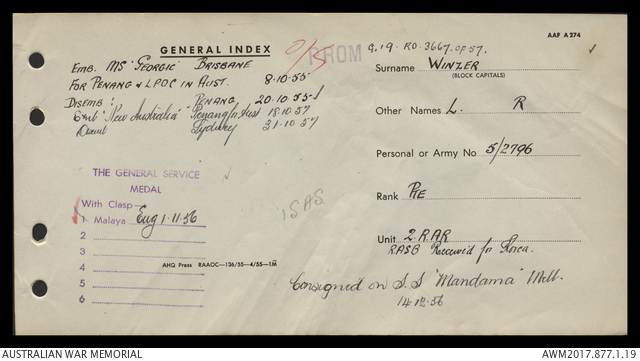 AAF A274
GENERAL INDEX
PROM
9.19. RO. 3667. OF 57.
EMB. MS "GEORGIC" BRISBANE
FOR PENANG & LPOC IN AUST. 8.10.55
DISEMB: PENANG, 20.10.55
Emb "New Australia" Penang Aust 18.10.57
Disemb Sydney 31.10.57
THE GENERAL SERVICE
MEDAL
With Clasp—
1 Malaya Eng 1.11.56
2
3
4
5
6
AHQ Press RAAOC—126/55—4/55—1M
Surname WINZER
(BLOCK CAPITALS)
Other Names L. R
Personal or Army No 5/2796
Rank PTE
Unit 2. RAR
RASB Received for Korea.
Consigned on S.S "Mandama" Melb.
14.12.56
AUSTRALIAN WAR MEMORIAL
AWM2017.877.1.19